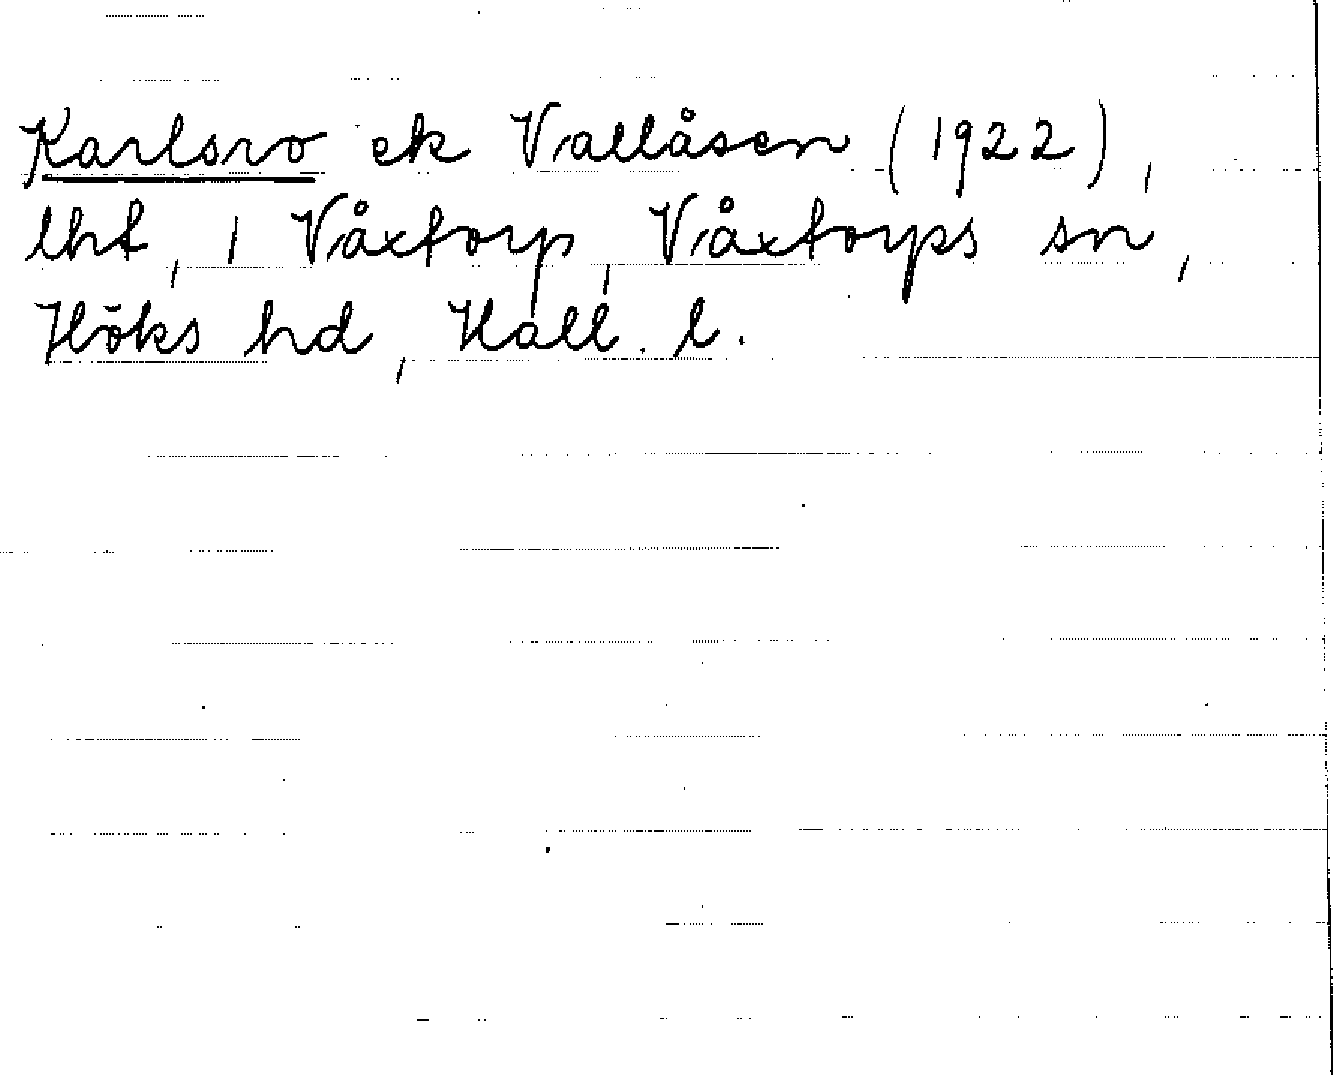 Karlsro ek Vallåsen (1922),
lht, 1 Våxtorp, Våxtorps sn,
Höks hd, Hall. l.